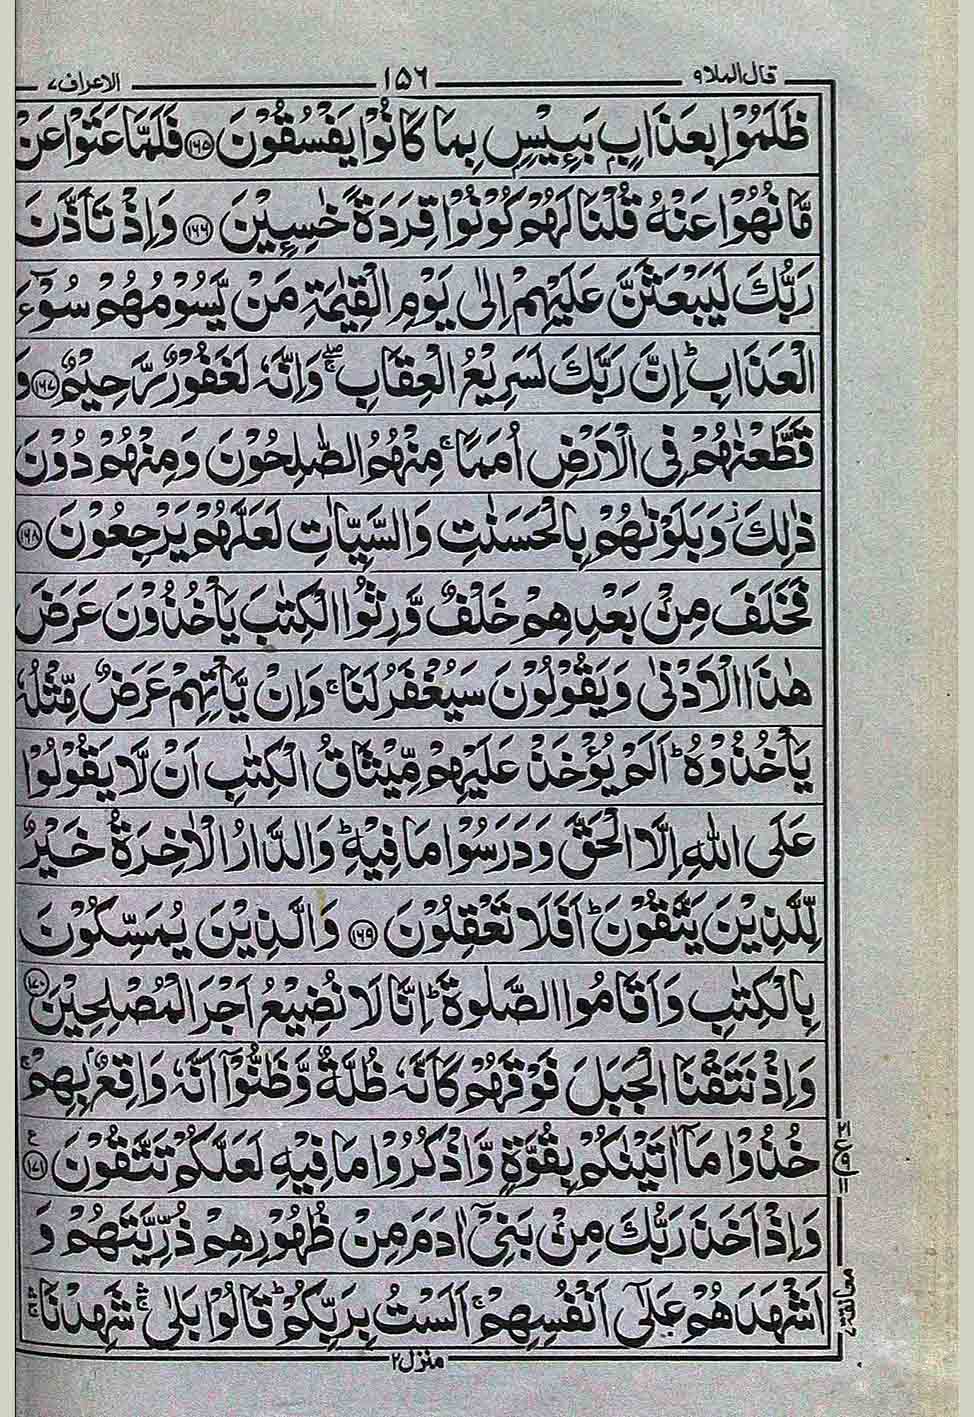 قال الملا ۹ ۱۵۶ الاعراف ۷
ظَلَمُوْا بِعَذَابٍۭ بَـِٕيْسٍۭ بِمَا كَانُوْا يَفْسُقُوْنَ ﴿۱۶۵﴾ فَلَمَّا عَتَوْا عَنْ
مَّا نُهُوْا عَنْهُ قُلْنَا لَهُمْ كُوْنُوْا قِرَدَةً خٰسِـِٕيْنَ ﴿۱۶۶﴾ وَاِذْ تَاَذَّنَ
رَبُّكَ لَيَبْعَثَنَّ عَلَيْهِمْ اِلٰى يَوْمِ الْقِيٰمَةِ مَنْ يَّسُوْمُهُمْ سُوْٓءَ
الْعَذَابِ ؕ اِنَّ رَبَّكَ لَسَرِيْعُ الْعِقَابِ ۖۚ وَاِنَّهٗ لَغَفُوْرٌ رَّحِيْمٌ ﴿۱۶۷﴾ وَ
قَطَّعْنٰهُمْ فِى الْاَرْضِ اُمَمًا ۚ مِنْهُمُ الصّٰلِحُوْنَ وَمِنْهُمْ دُوْنَ
ذٰلِكَ ز وَبَلَوْنٰهُمْ بِالْحَسَنٰتِ وَالسَّيِّاٰتِ لَعَلَّهُمْ يَرْجِعُوْنَ ﴿۱۶۸﴾
فَخَلَفَ مِنْۢ بَعْدِهِمْ خَلْفٌ وَّرِثُوا الْكِتٰبَ يَاْخُذُوْنَ عَرَضَ
هٰذَا الْاَدْنٰى وَيَقُوْلُوْنَ سَيُغْفَرُ لَنَا ۚ وَاِنْ يَّاْتِهِمْ عَرَضٌ مِّثْلُهٗ
يَاْخُذُوْهُ ؕ اَلَمْ يُؤْخَذْ عَلَيْهِمْ مِّيْثَاقُ الْكِتٰبِ اَنْ لَّا يَقُوْلُوْا
عَلَى اللّٰهِ اِلَّا الْحَقَّ وَدَرَسُوْا مَا فِيْهِ ؕ وَالدَّارُ الْاٰخِرَةُ خَيْرٌ
لِّلَّذِيْنَ يَتَّقُوْنَ ؕ اَفَلَا تَعْقِلُوْنَ ﴿۱۶۹﴾ وَالَّذِيْنَ يُمَسِّكُوْنَ
بِالْكِتٰبِ وَاَقَامُوا الصَّلٰوةَ ؕ اِنَّا لَا نُضِيْعُ اَجْرَ الْمُصْلِحِيْنَ ﴿۱۷۰﴾
وَاِذْ نَتَقْنَا الْجَبَلَ فَوْقَهُمْ كَاَنَّهٗ ظُلَّةٌ وَّظَنُّوْٓا اَنَّهٗ وَاقِعٌۢ بِهِمْ ۚ
خُذُوْا مَآ اٰتَيْنٰكُمْ بِقُوَّةٍ وَّاذْكُرُوْا مَا فِيْهِ لَعَلَّكُمْ تَتَّقُوْنَ ﴿۱۷۱﴾ ع
۲۱ ع ۹ ۱۱
وَاِذْ اَخَذَ رَبُّكَ مِنْۢ بَنِىْٓ اٰدَمَ مِنْ ظُهُوْرِهِمْ ذُرِّيَّتَهُمْ وَ
اَشْهَدَهُمْ عَلٰٓى اَنْفُسِهِمْ ۚ اَلَسْتُ بِرَبِّكُمْ ؕ قَالُوْا بَلٰى ۛۚ شَهِدْنَا ۛۚ
معانقة
منزل ۲